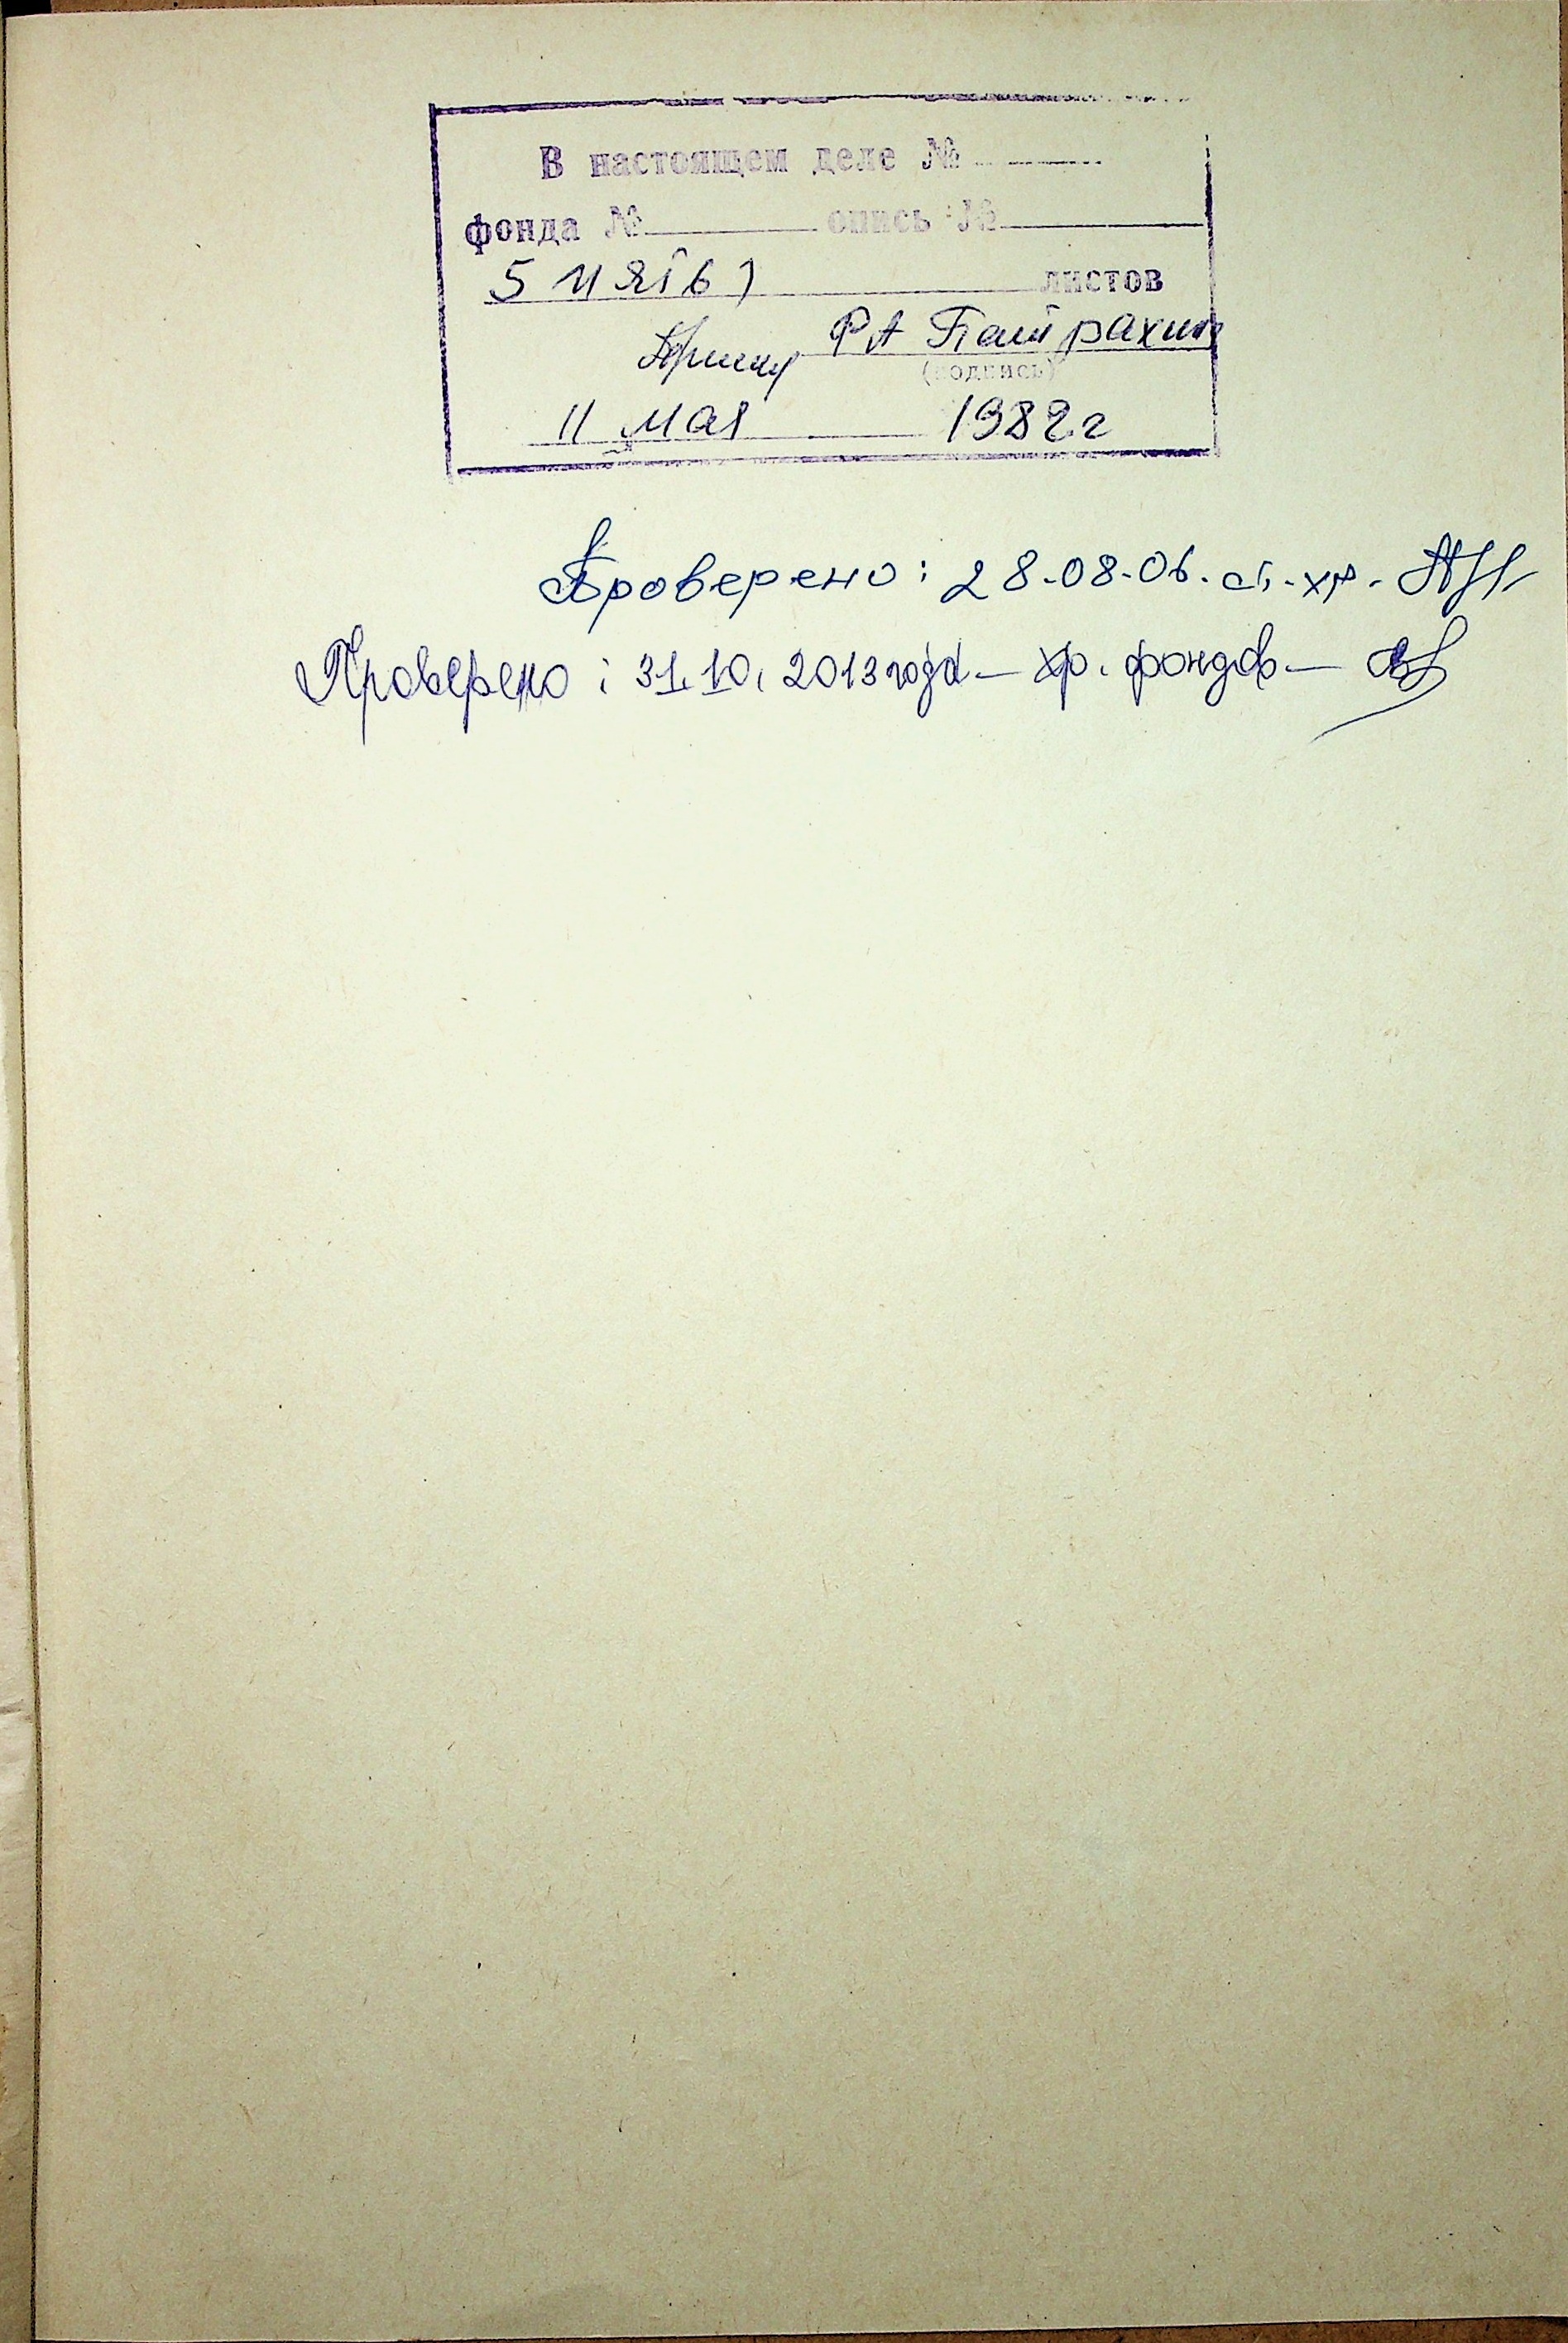 В настоящем деле №
фонда № опись №
5 листов
РА
(подпись)
11 мая 1982 г
Проверено: 28.08.06. ст. хр.
Проверено: 31.10. 2013 года – хр. фондов –